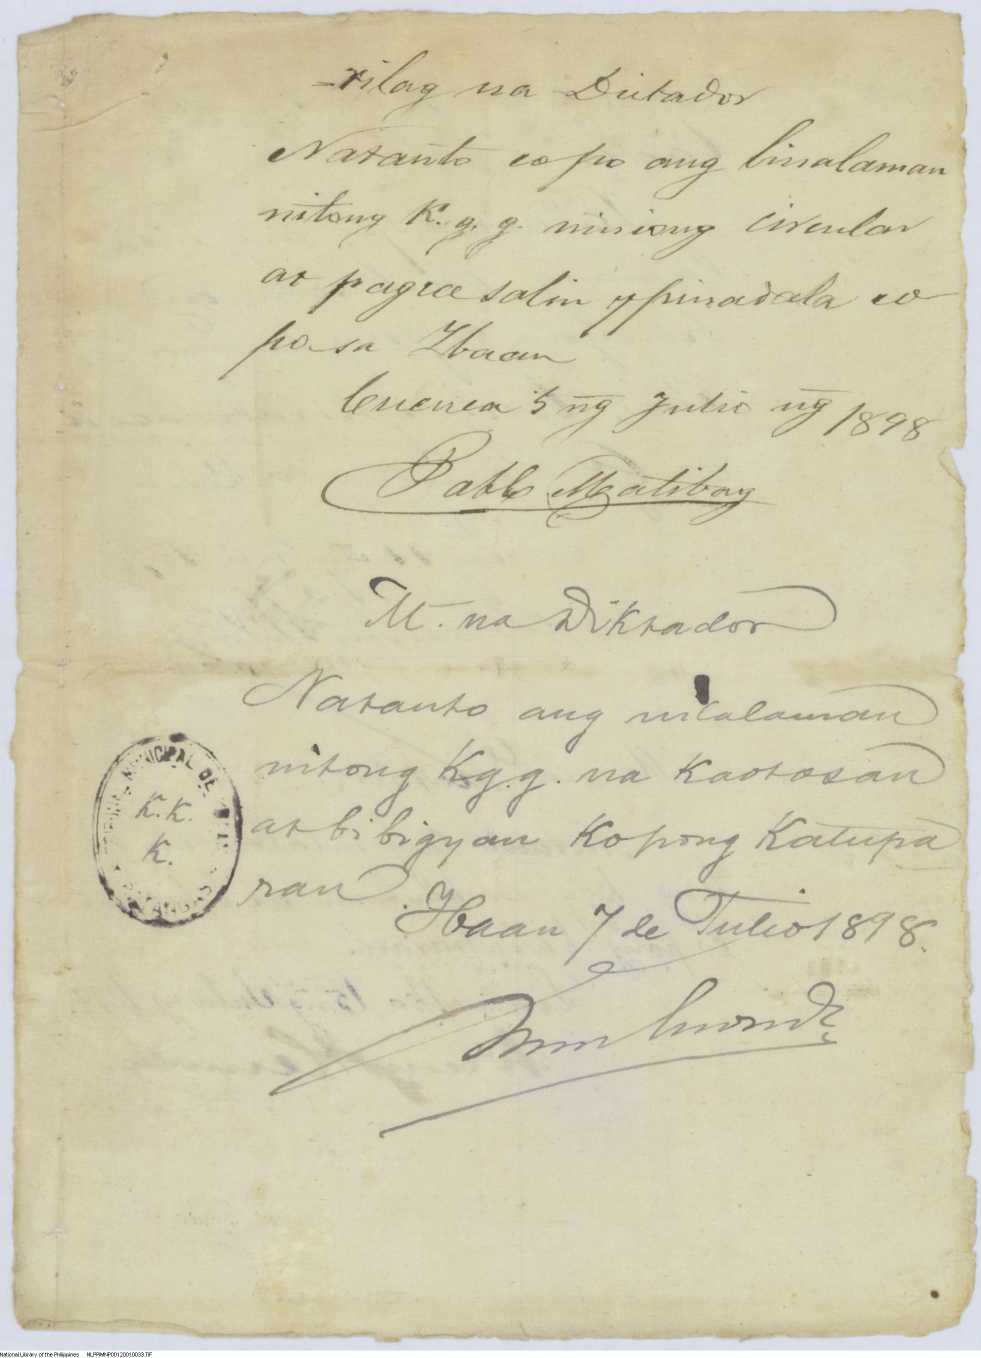 -rilag na Dictador
Natanto co po ang linalaman
nitong K. g. g. niniong circular
at pagca salin ypinadala co
po sa Ibaan
Cuenca 5 ng Julio ng 1898
Pablo Matibag
M. na Diktador
Natanto ang nilalaman
nitong Kg. g. na Kaotosan
at bibigyan Ko pong Katupa
ran.
Ibaan 7 de Julio 1898.
MUNICIPAL DE
K. K.
K.
BATANGAS
National Library of the Philippines NLPPMNP00120010033.TIF